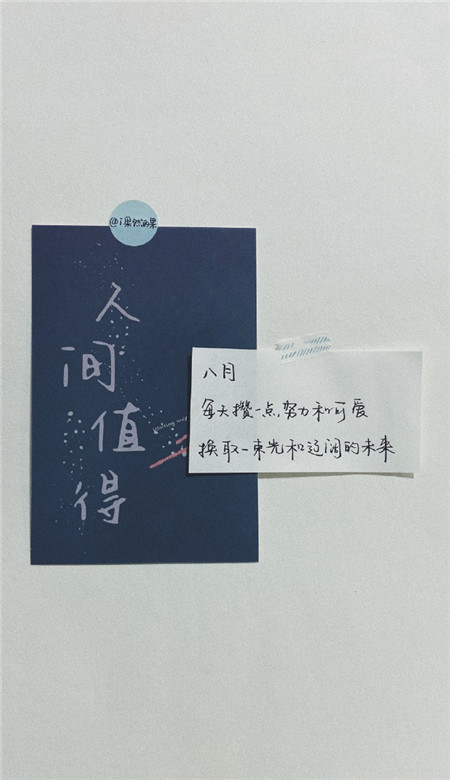 @i果然如果
人
间
值
得
八月
每天攒一点努力和可爱
换取一束光和辽阔的未来